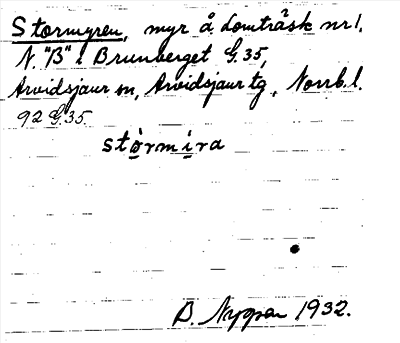 Stormyren, myr å Lomträsk nr 1,
N. "B" i Brunberget G.35,
Arvidsjaur sn, Arvidsjaur tg, Norrb. l.
92 G.35
stòrmira
B. Nygren 1932.